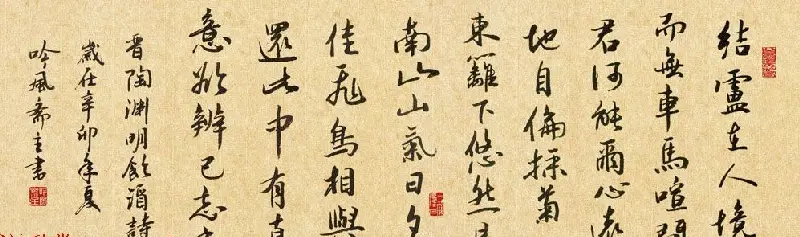 結盧在人境
而無車馬喧問
君何能爾心遠
地自偏採菊
東籬下悠然
南山山氣日夕
佳飛鳥相與
還此中有真
意欲辨已忘
晉陶淵明飲酒詩
歲在辛卯年夏
吟風齋主書